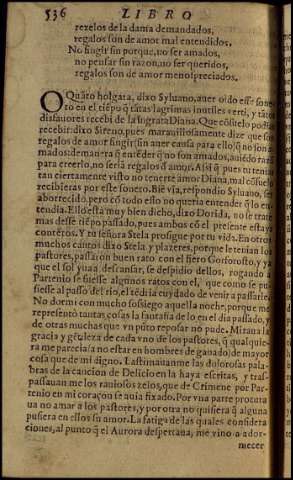 536 LIBRO
rezelos de la dama demandados,
regalos son de amor mal entendidos,
No fingir sin porque, no ser amados,
no pensar sin razon, no ser queridos,
regalos son de amor menospreciados.
O Quãto holgara, dixo Syluano, auer oido esse sone-
to en el tiẽpo q̃ tãtas lagrimas inutiles verti, y tãtos
disfauores recebi de la ingrata Diana. Que cõsuelo podias
recebir dixo Sireno, pues marauillosamente dize que son
regalos de amor fingir sin auer causa para ello q̃ no son a-
mados: de manera q̃ entẽder q̃ no son amados, auiẽdo razõ
para creerlo, no seria regalos d̃ amor. Assi q̃ pues tu tenias
tan ciertamente visto no tenerte amor Diana, mal cõsuelo
recibieras por este soneto. Biẽ via, respondio Syluano, ser
aborrecido, pero cõ todo esso no queria entender q̃ lo en-
tendia. Ello està muy bien dicho, dixo Dorida, no se trate
mas desse tiẽpo passado, pues ambos cõ el presente estays
contẽtos. Y tu señora Stela prosigue por tu vida. En otros
muchos cantos dixo Stela, y plazeres, porque le tenian los
pastores, passaron buen rato con el fiero Gorforosto, y ya
que el sol yua a descansar, se despidio dellos, rogando a
Partenio se fuesse algunos ratos con el, que como se pu-
siesse al passo del rio, el tẽdria cuydado de venir a passarle.
No dormi con mucho sossiego aquella noche, porque me
representò tantas cosas la fantasia de lo en el dia passado, y
de otras muchas que vn pũto reposar no pude. Miraua la
gracia y gẽtileza de cada vno de los pastores, q̃ qualquie-
ra me parecia (a no estar en hombres de ganado) de mayor
cosa que de mi digno. Lastimauanme las dolorosas pala-
bras de la cancion de Delicio en la haya escritas, y tras-
passauan me los rauiosos zelos, que de Crimene por Par-
tenio en mi coraçon se auia fixado. Por vna parte procura
ua no amar a los pastores, y por otra no quisiera q̃ alguna
pusiera en ellos su amor. La fatiga de las quales considera
ciones, al punto q̃ el Aurora despertaua, me vino a ador-
mecer